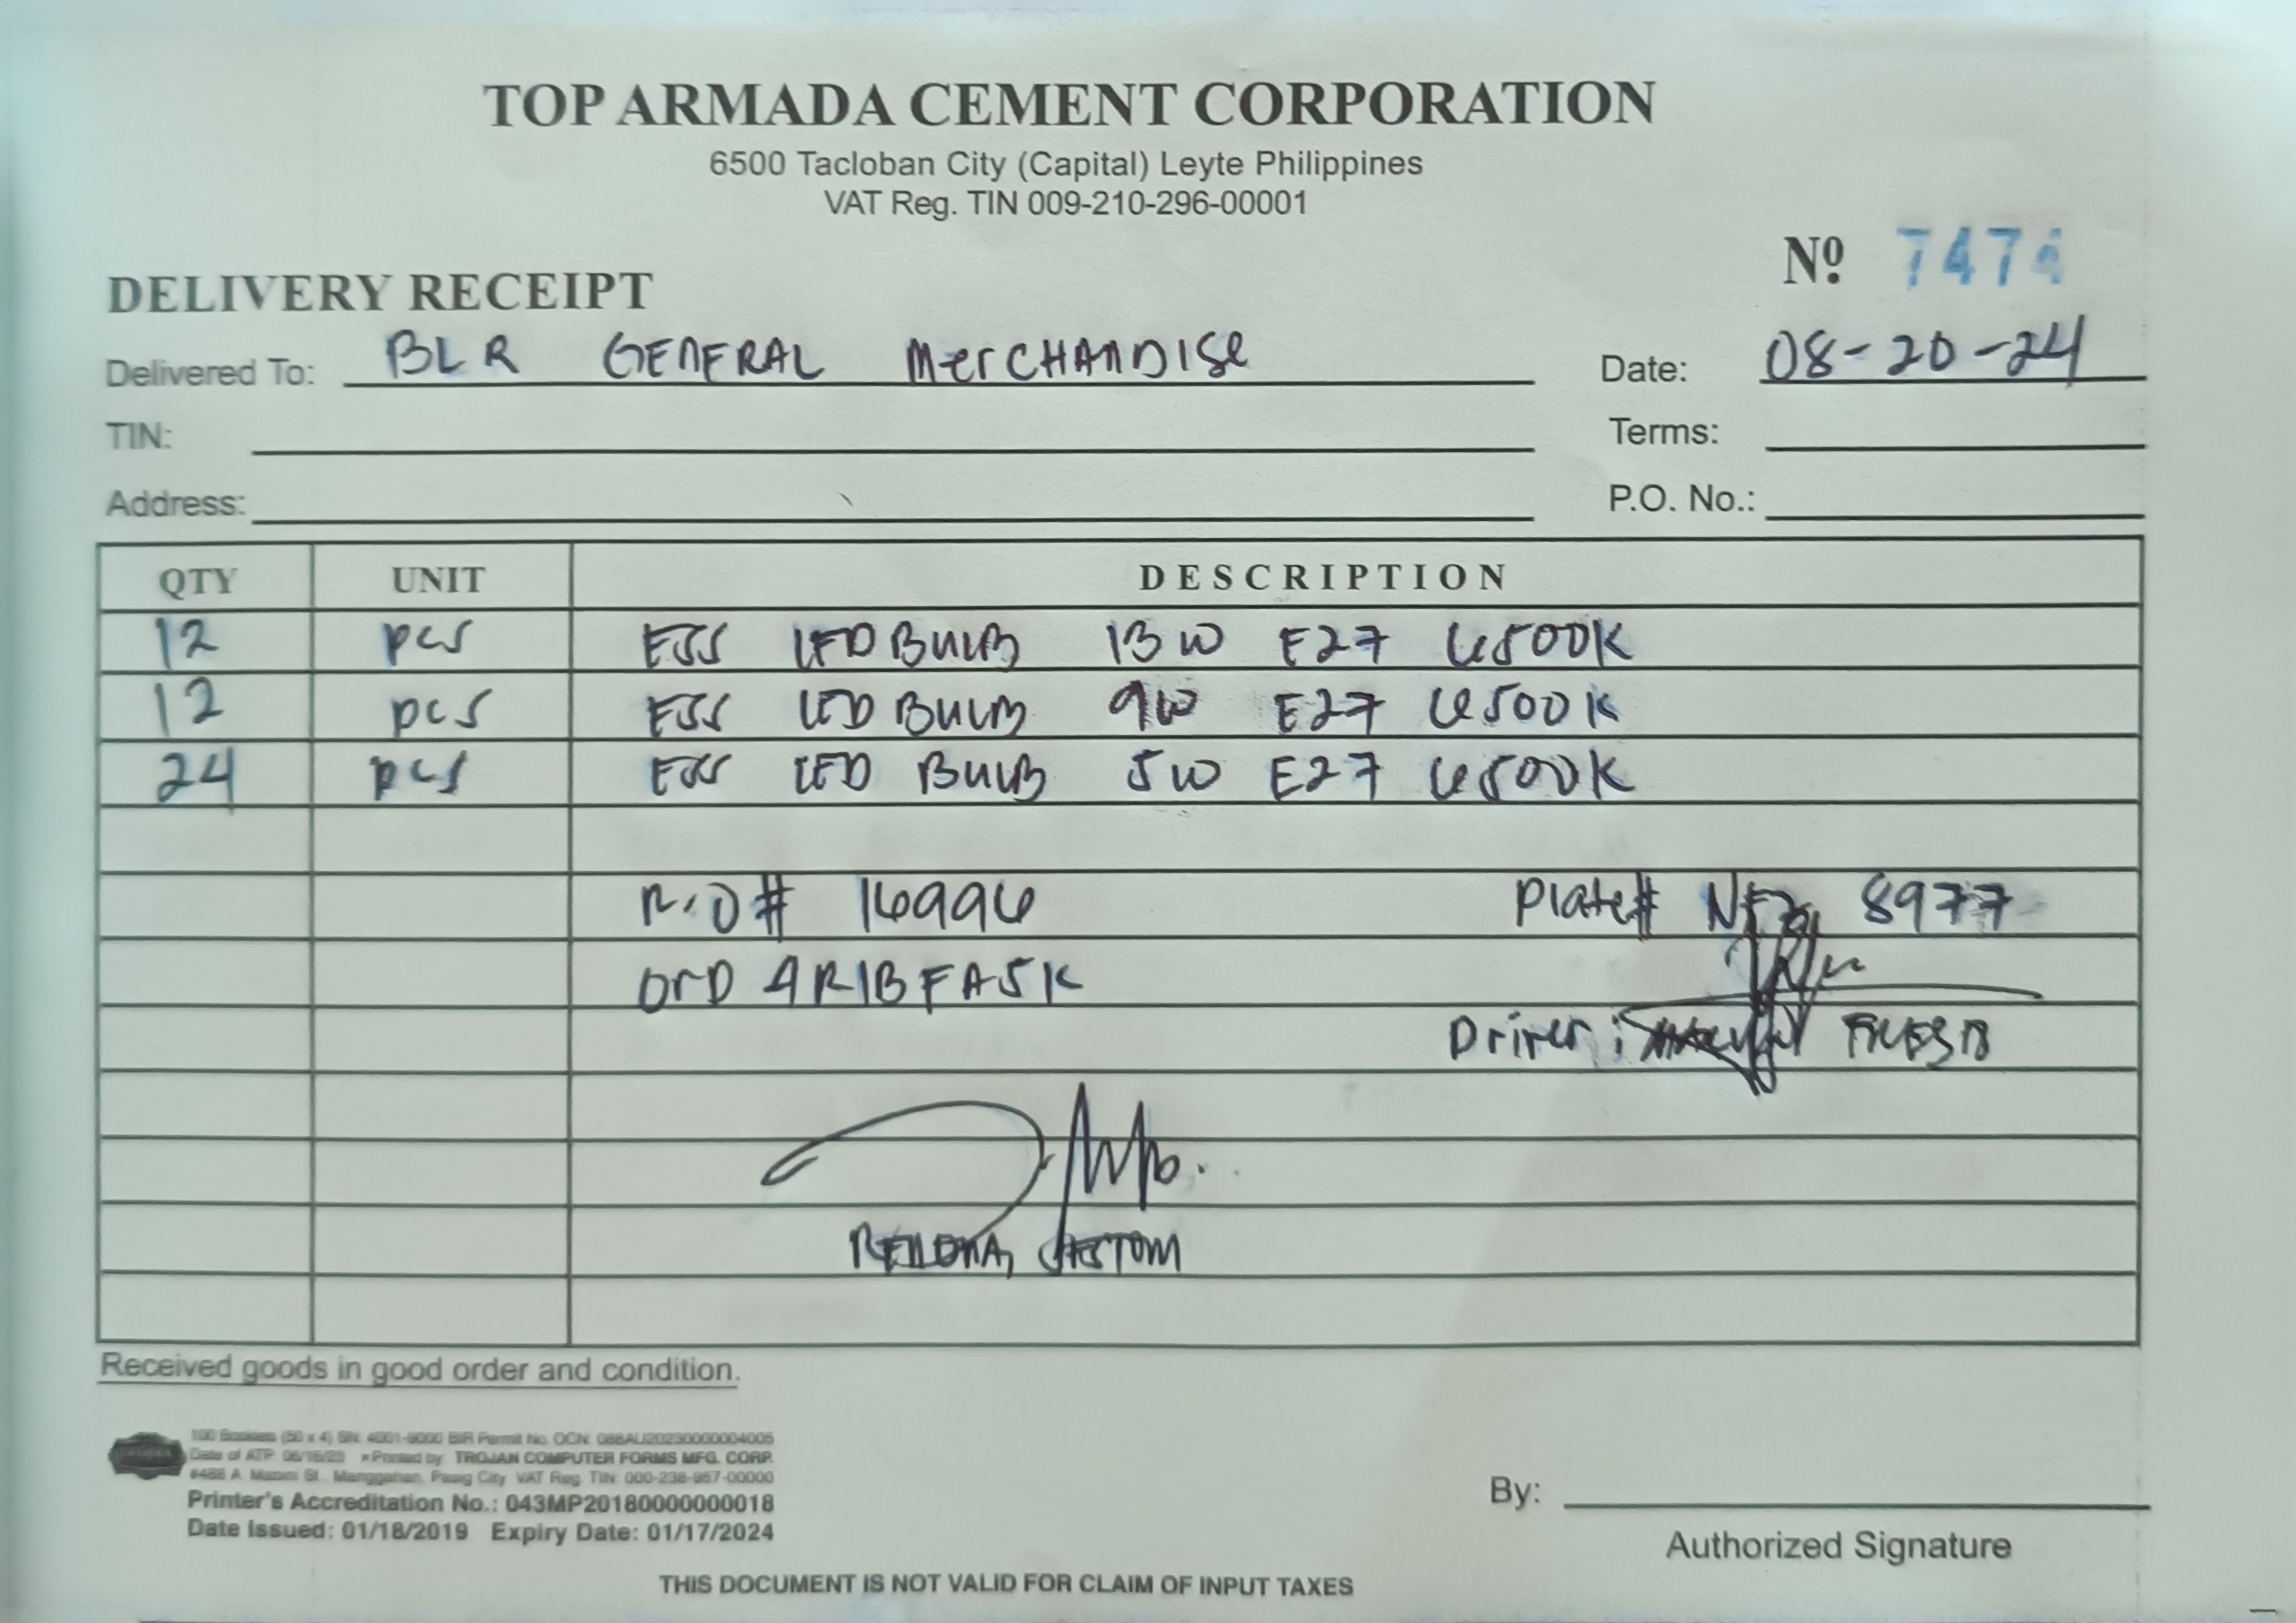 TOP ARMADA CEMENT CORPORATION
6500 Tacloban City (Capital) Leyte Philippines
VAT Reg. TIN 009-210-296-00001
Nº 747
DELIVERY RECEIPT
Delivered To: BLR GENERAL MerCHANDISE Date: 08-20-24
TIN: Terms:
Address: P.O. No.:
QTY UNIT DESCRIPTION
12 pcs ESS LED BULB 13W E27 6500K
12 pcs ESS LED BULB 9W E27 6500K
24 pcs ESS LED BULB 5W E27 6500K
R.O# 16996 Plate# 8977
OrD 4R1BFA5K
Driver:
Received goods in good order and condition.
100 Booklets (50 x 4) SN: 4001-9000 BIR Permit No. OCN: 088AU20230000004005
Date of ATP: 06/16/23 Printed by: TROJAN COMPUTER FORMS MFG. CORP.
#488 A. Manggahan, Pasig City VAT Reg. TIN: 000-238-967-00000
Printer's Accreditation No.: 043MP20180000000018
Date Issued: 01/18/2019 Expiry Date: 01/17/2024
By:
Authorized Signature
THIS DOCUMENT IS NOT VALID FOR CLAIM OF INPUT TAXES